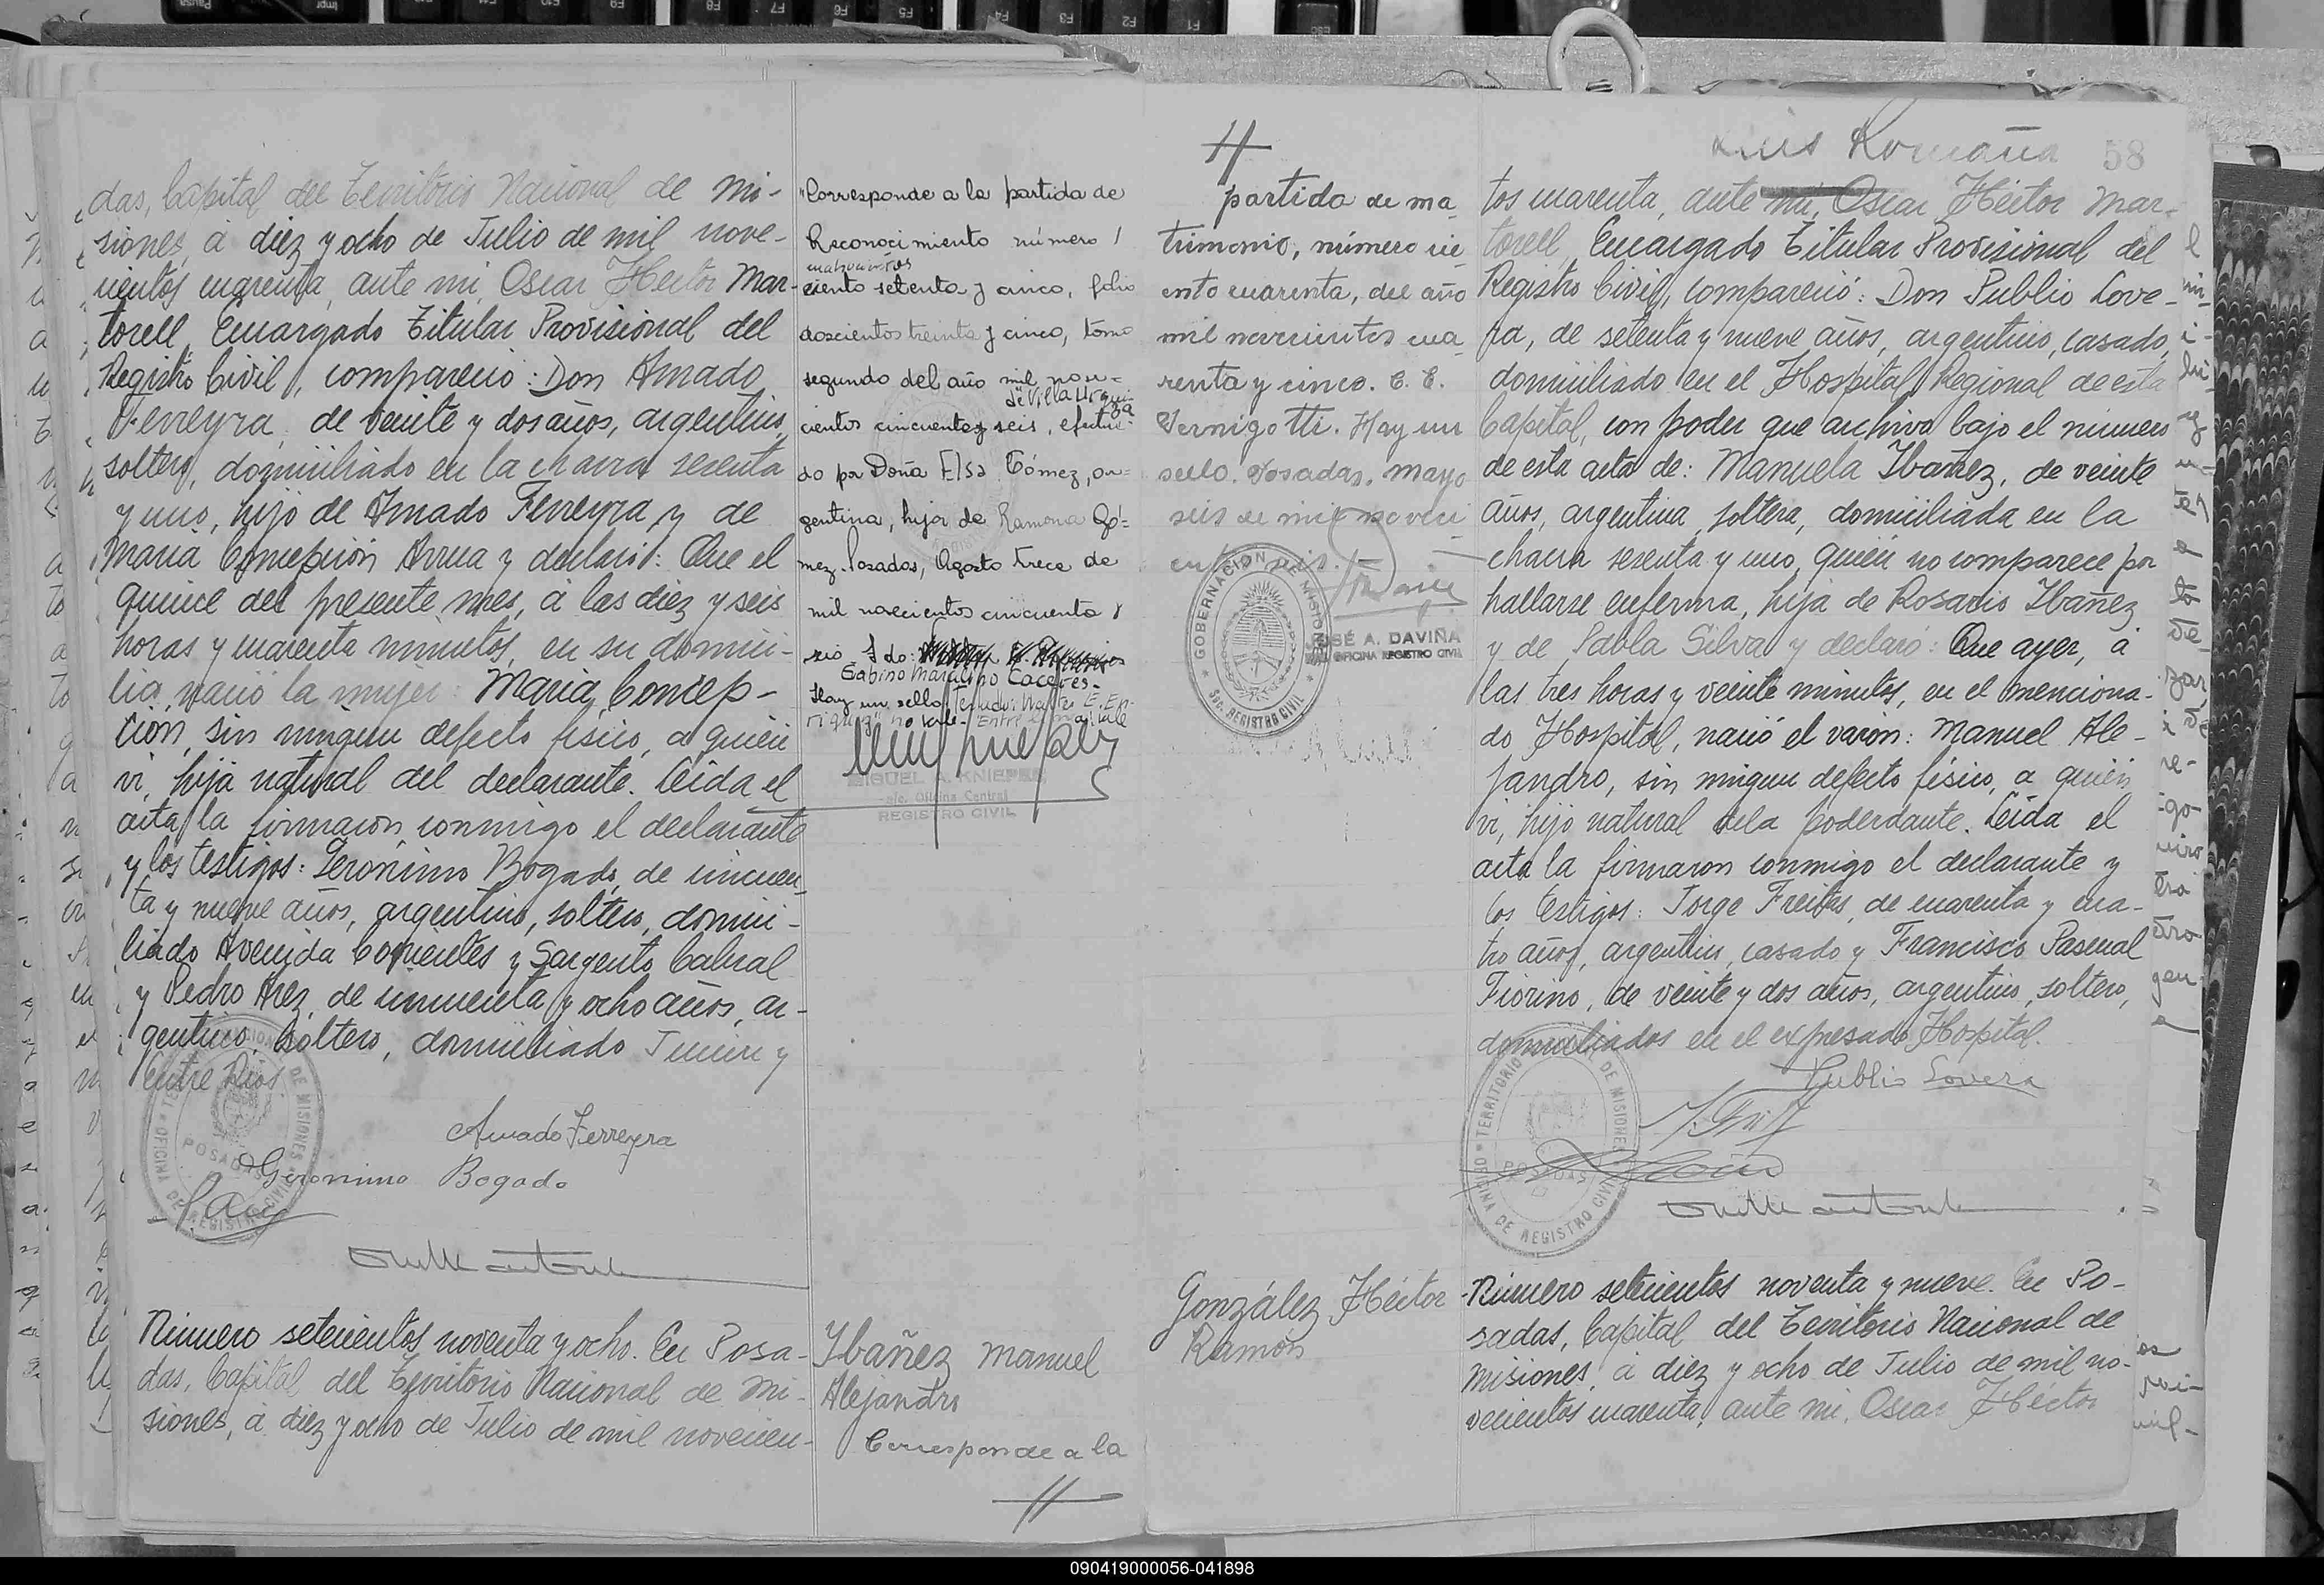 das, Capital del Territorio Nacional de Mi-
siones, á diez y ocho de Julio de mil nove-
cientos cuarenta, ante mí, Oscar Héctor Mar-
torell, Encargado Titular Provisional del
Registro Civil, compareció: Don Amado
Ferreyra, de veinte y dos años, argentino,
soltero, domiciliado en la chacra sesenta
y uno, hijo de Amado Ferreyra y de
María Concepción Arrua y declaró: Que el
quince del presente mes, á las diez y seis
horas y cuarenta minutos, en su domici-
lio, nació la mujer: María Concep-
ción, sin ningun defecto físico, a quién
vi, hija natural del declarante. Leída el
acta la firmaron conmigo el declarante
y los testigos: Gerónimo Bogado, de cincuen-
ta y nueve años, argentino, soltero, domici-
liado Avenida Corrientes y Sargento Cabral
y Pedro Arez, de cincuenta y ocho años, ar-
gentino, soltero, domiciliado Junin y
Entre Rios.
Amado Ferreyra
Geronimo Bogado
TERRITORIO DE MISIONES
POSADAS
OFICINA DE REGISTRO CIVIL
Número setecientos noventa y ocho. En Posa-
das, Capital del Territorio Nacional de Mi-
siones, á diez y ocho de Julio de mil novecien-
"Corresponde a la partida de
Reconocimiento número
cuatrocientos
ciento setenta y cinco, folio
doscientos treinta y cinco, tomo
segundo del año mil nove-
de Villa Urquiza
cientos cincuenta y seis, efectua-
do por Doña Elsa Gómez, ar-
gentina, hija de Ramona Gó-
mez. Posadas, Agosto trece de
mil novecientos cincuenta y
seis Fdo:
Gabino Marcelino Caceres-
Hay un sello
no vale-
MIGUEL A. KNIEPER
a/c. Oficina Central
REGISTRO CIVIL
Ibañez Manuel
Alejandro
Corresponde a la
//
//
partida de ma-
trimonio, número ci-
ento cuarenta, del año
mil novecientos cua-
renta y cinco. E. E.
Vernigotti. Hay un
sello. Posadas, mayo
seis de mil noveci
GOBERNACION DE MISIONES
SEC. REGISTRO CIVIL
JOSÉ A. DAVIÑA
OFICINA REGISTRO CIVIL
González Héctor
Ramón
Luis Romaña
58
tos cuarenta, ante mí, Oscar Héctor Mar-
torell, Encargado Titular Provisional del
Registro Civil, compareció: Don Publio Love-
ra, de setenta y nueve años, argentino, casado,
domiciliado en el Hospital Regional de esta
Capital, con poder que archivo bajo el número
de esta acta de: Manuela Ibañez, de veinte
años, argentina, soltera, domiciliada en la
chacra sesenta y uno, quién no comparece por
hallarse enferma, hija de Rosario Ibañez
y de Pabla Silva y declaró: Que ayer, á
las tres horas y veinte minutos, en el menciona-
do Hospital, nació el varón: Manuel Ale-
jandro, sin ningun defecto físico, a quién
vi, hijo natural de la poderdante. Leída el
acta la firmaron conmigo el declarante y
los testigos: Jorge Freites, de cuarenta y cua-
tro años, argentino, casado y Francisco Pascual
Fiorino, de veinte y dos años, argentino, soltero,
domiciliados en el expresado Hospital.
Publio Lovera
TERRITORIO DE MISIONES
POSADAS
OFICINA DE REGISTRO CIVIL
Número setecientos noventa y nueve. En Po-
sadas, Capital del Territorio Nacional de
Misiones, á diez y ocho de Julio de mil no-
vecientos cuarenta, ante mí, Oscar Héctor
090419000056-041898